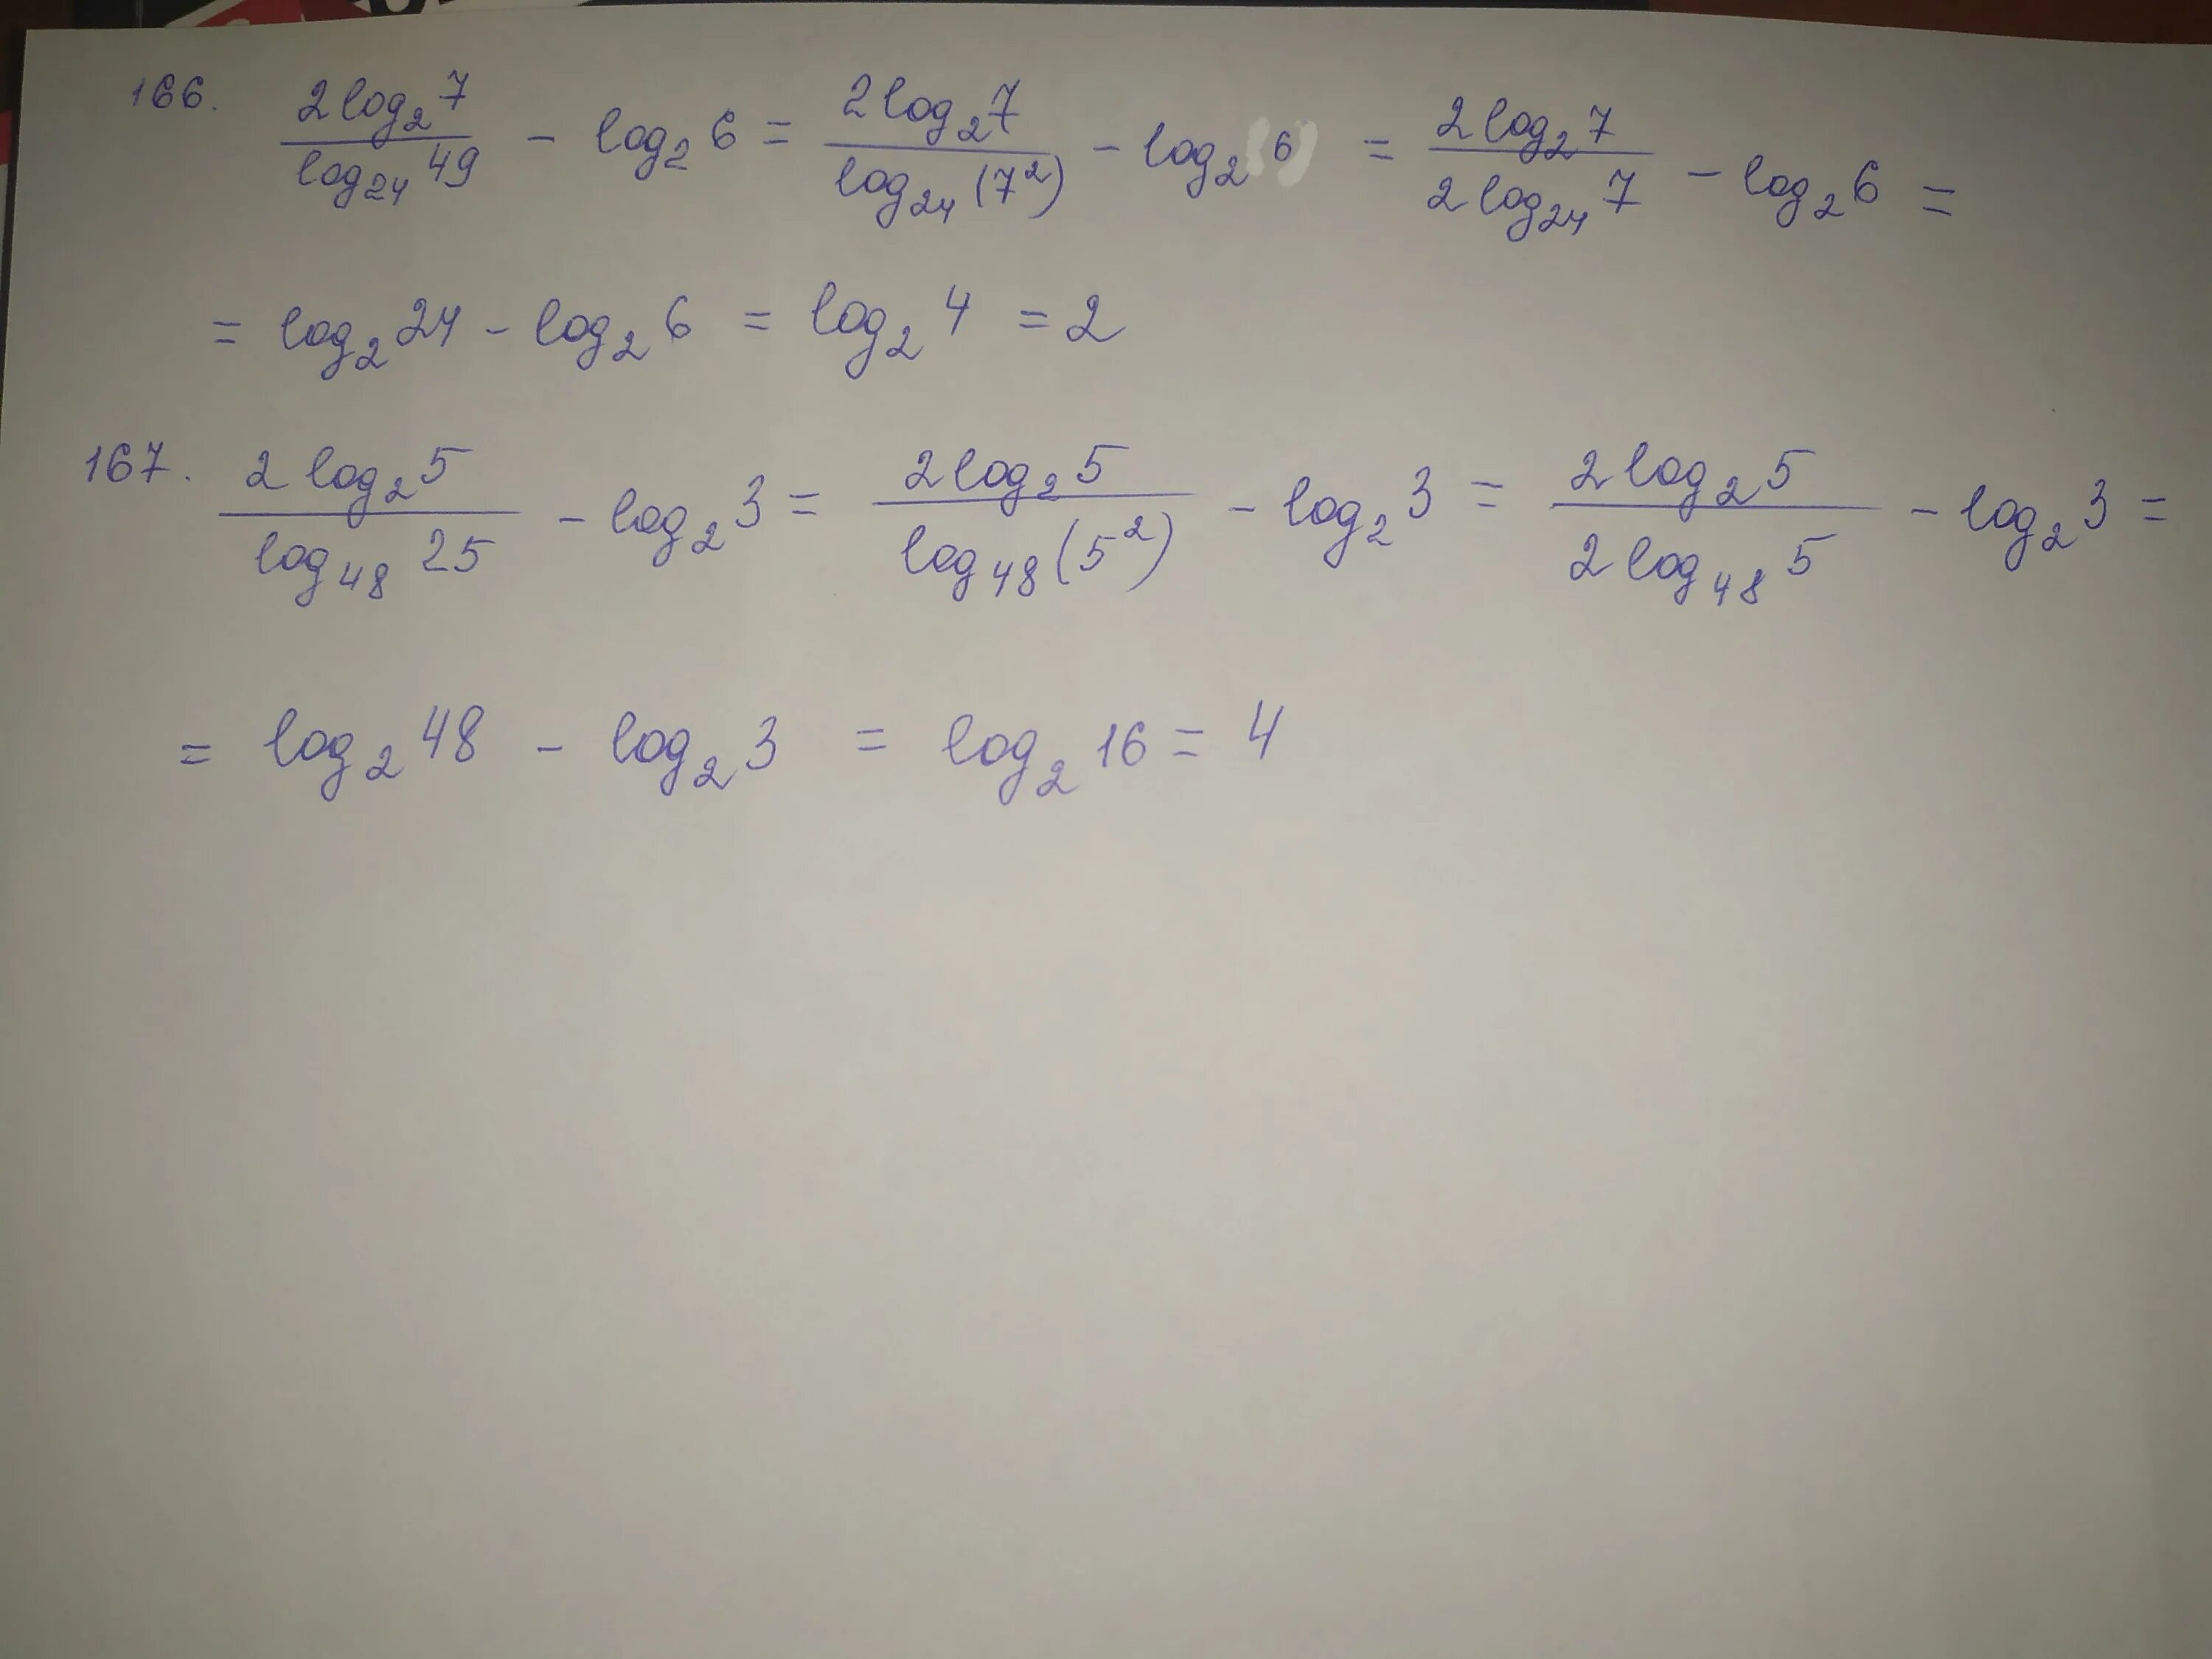 166. \frac{2 log_2 7}{log_{24} 49} - log_2 6 = \frac{2 log_2 7}{log_{24} (7^2)} - log_2 6 = \frac{2 log_2 7}{2 log_{24} 7} - log_2 6 =
= log_2 24 - log_2 6 = log_2 4 = 2
167. \frac{2 log_2 5}{log_{48} 25} - log_2 3 = \frac{2 log_2 5}{log_{48} (5^2)} - log_2 3 = \frac{2 log_2 5}{2 log_{48} 5} - log_2 3 =
= log_2 48 - log_2 3 = log_2 16 = 4